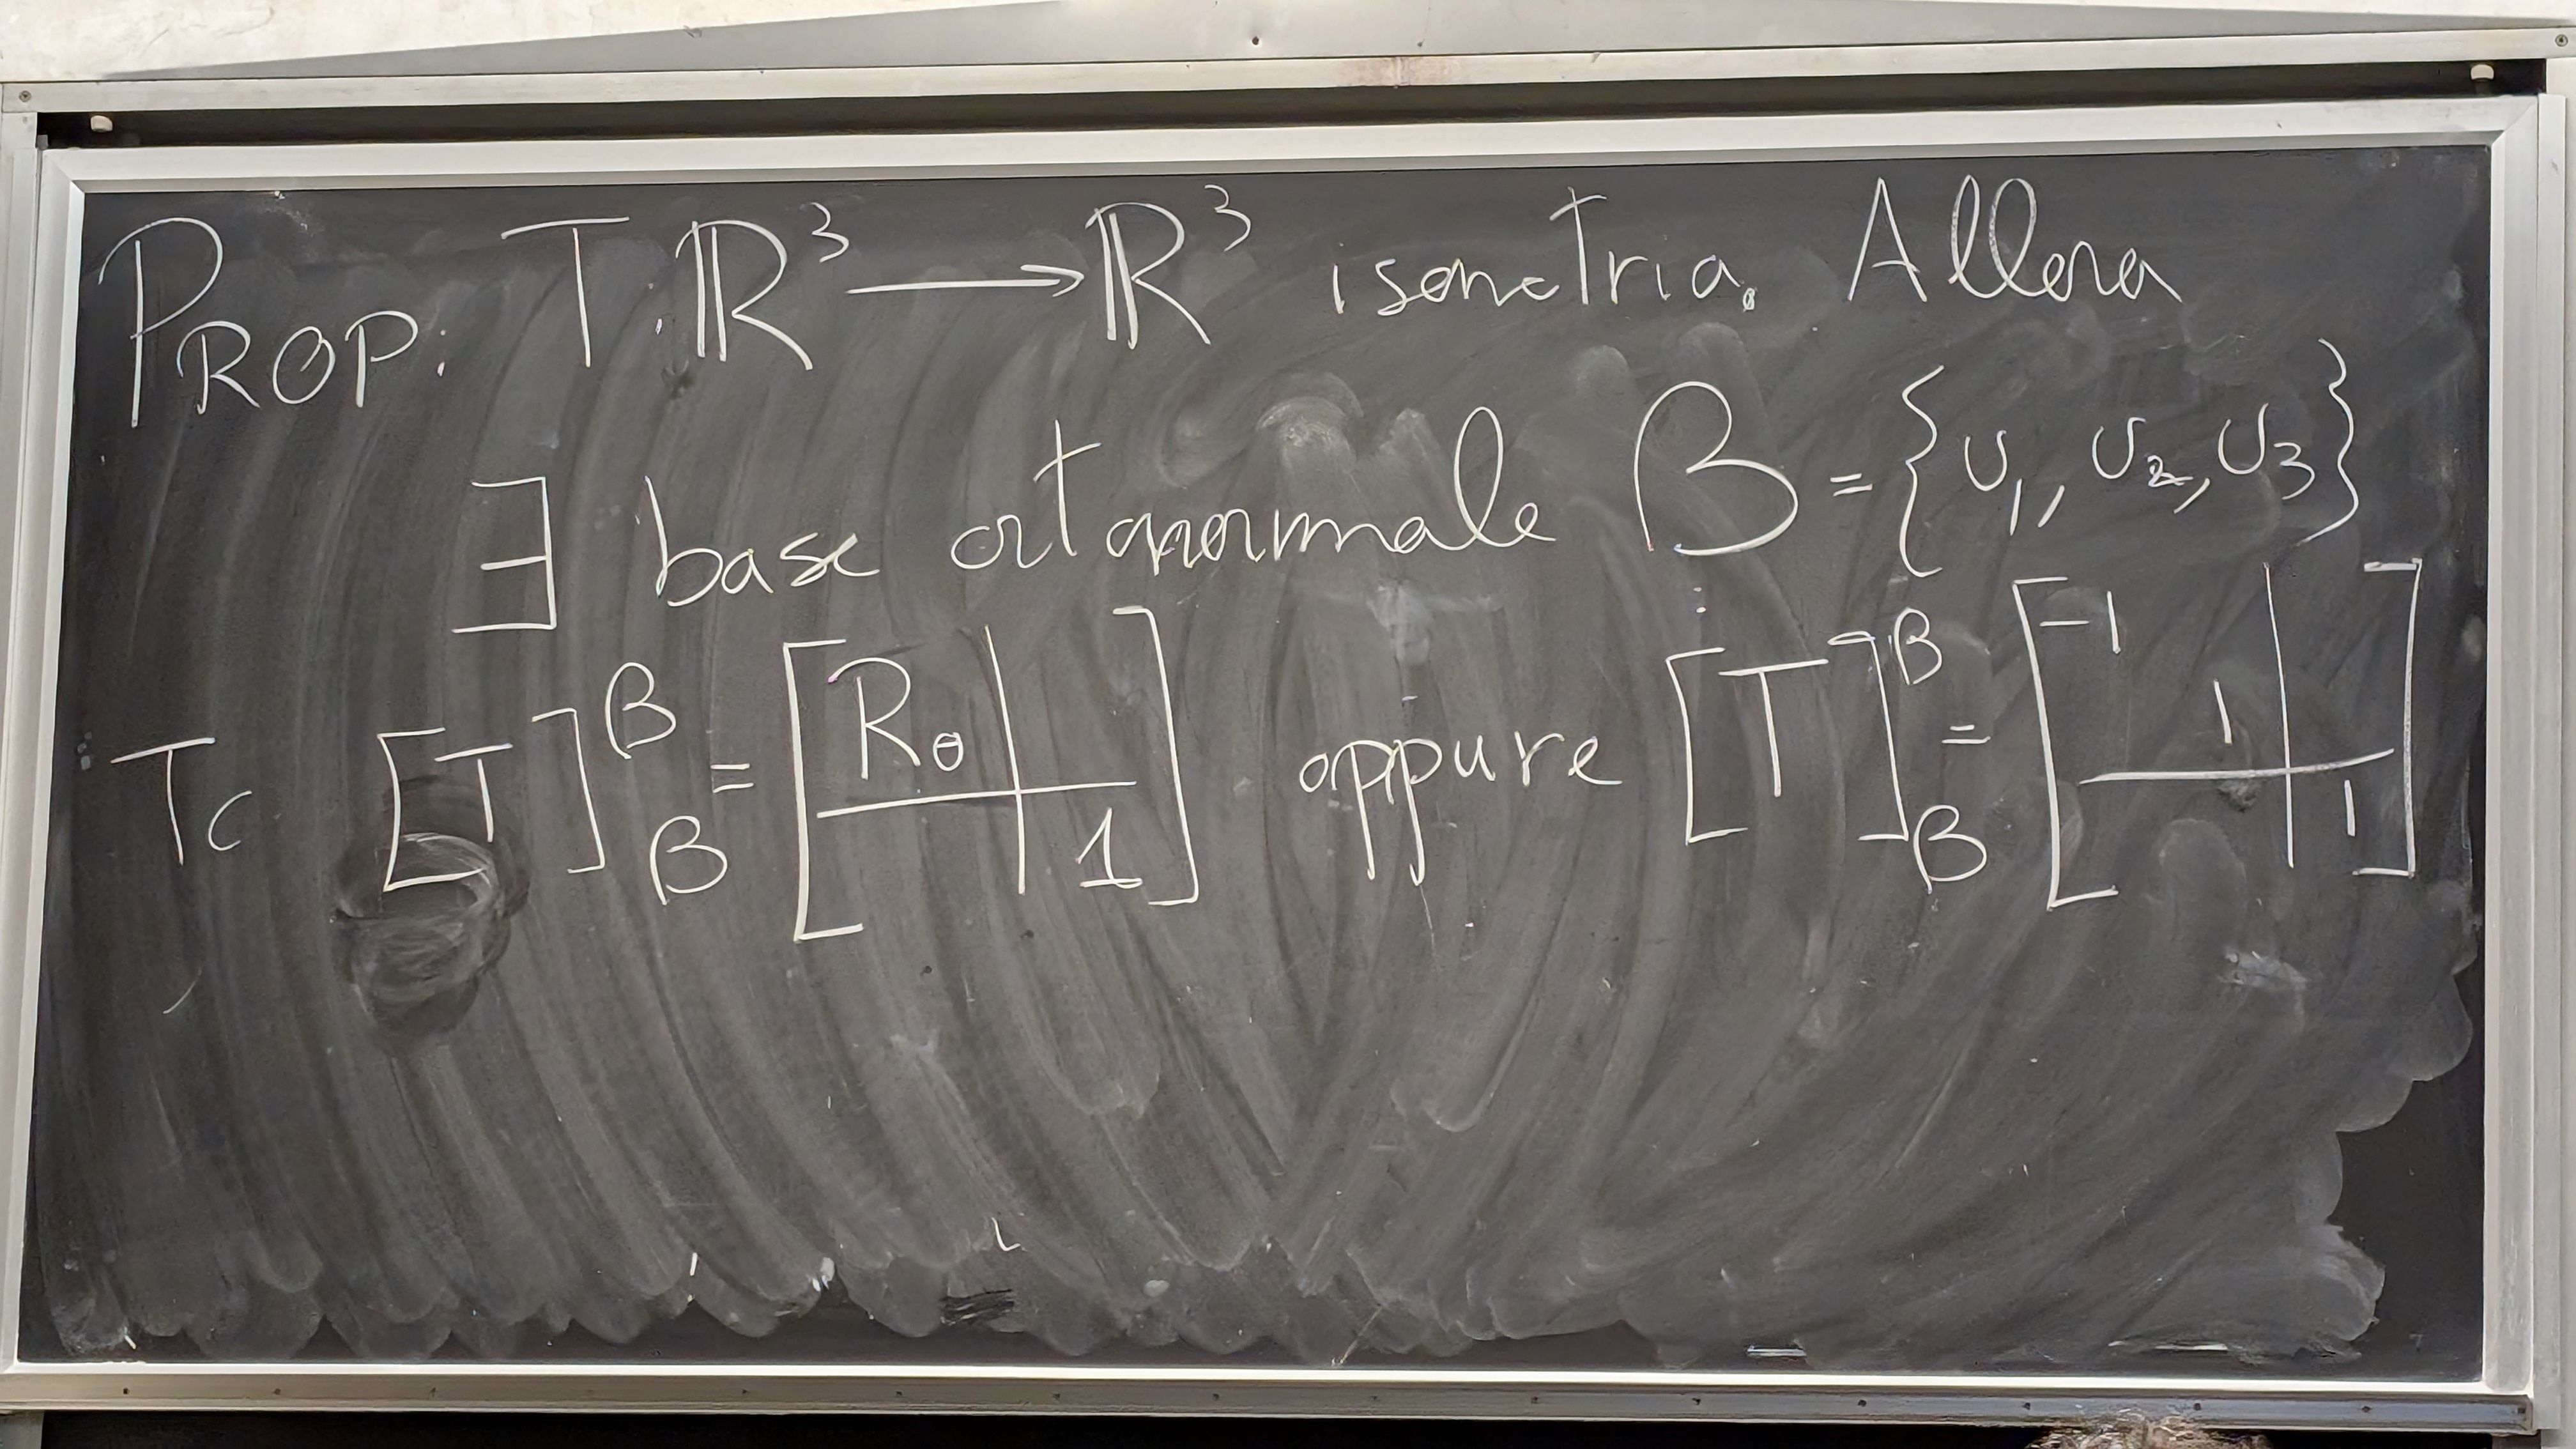 PROP: T: ℝ³ ⟶ ℝ³ isometria. Allora
∃ base ortonormale B = {v₁, v₂, v₃}
Tc [T]^B_B = [R_θ | ; | 1] oppure [T]^B_B = [-1 1 | ; | 1]